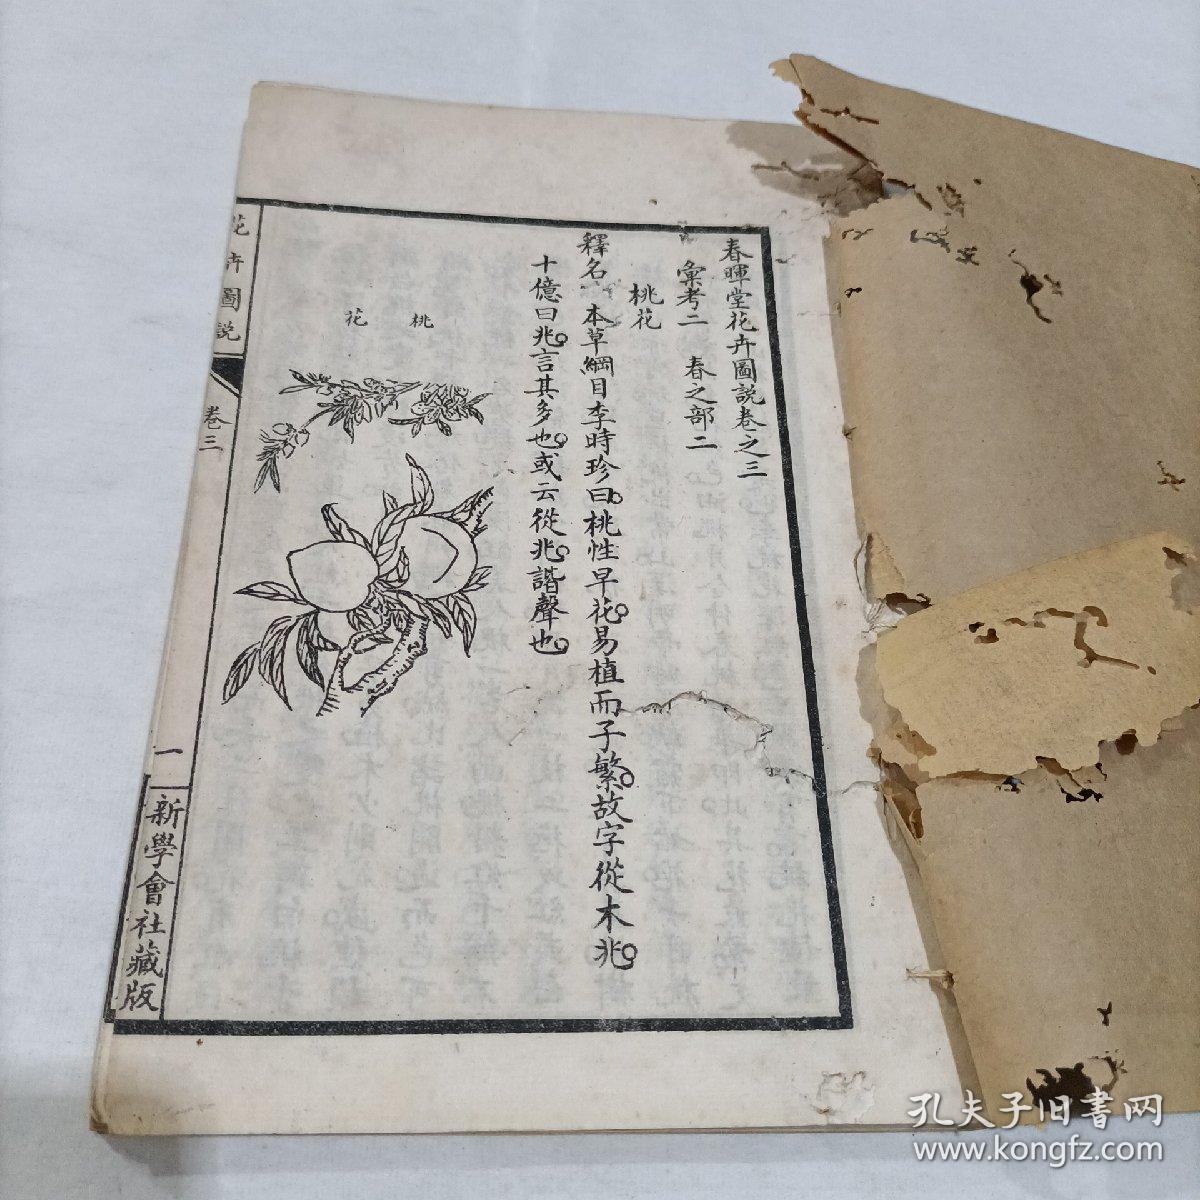 春暉堂花卉圖說卷之三
彙考二　春之部二
桃花
釋名　本草綱目李時珍曰桃性早花易植而子繁故字從木兆
十億曰兆言其多也或云從兆諧聲也
桃花
花卉圖說
卷三
一
新學會社藏版
孔夫子旧书网
www.kongfz.com